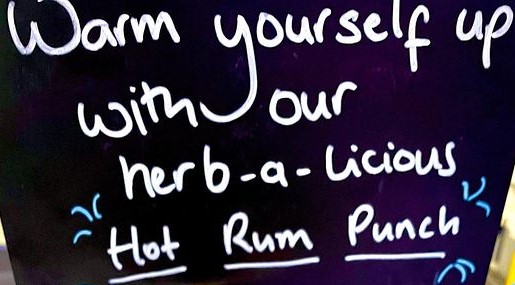 Warm yourself up
with our
herb-a-licious
Hot Rum Punch